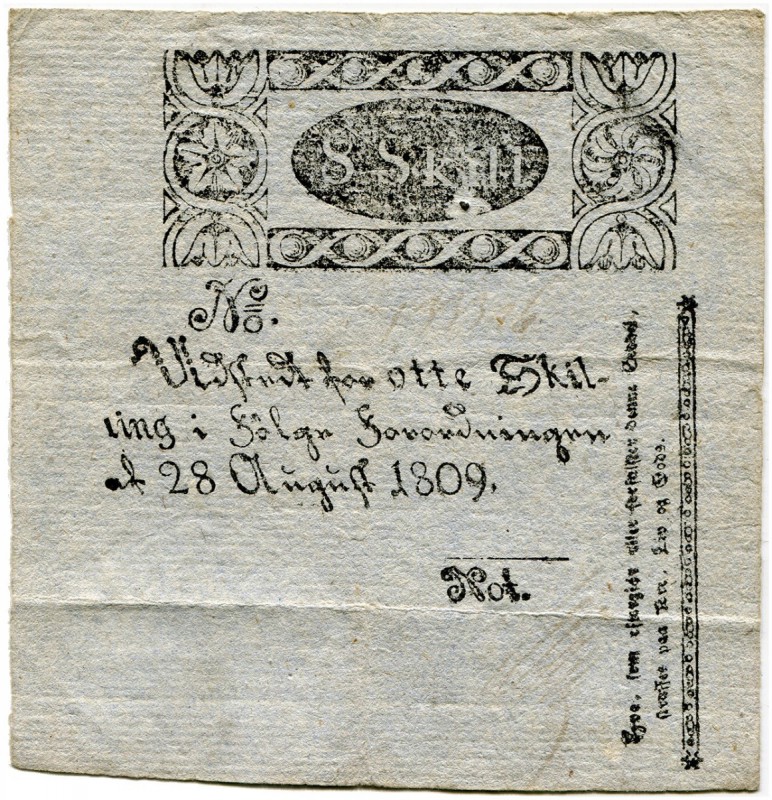 8 Skill
No.
Udstedt for otte Skil-
ling i Fölge Forordningen
af 28 August 1809.
Not.
Hvo, som eftergiör eller forfalsker denne Seddel,
straffes paa Ære, Liv og Gods.